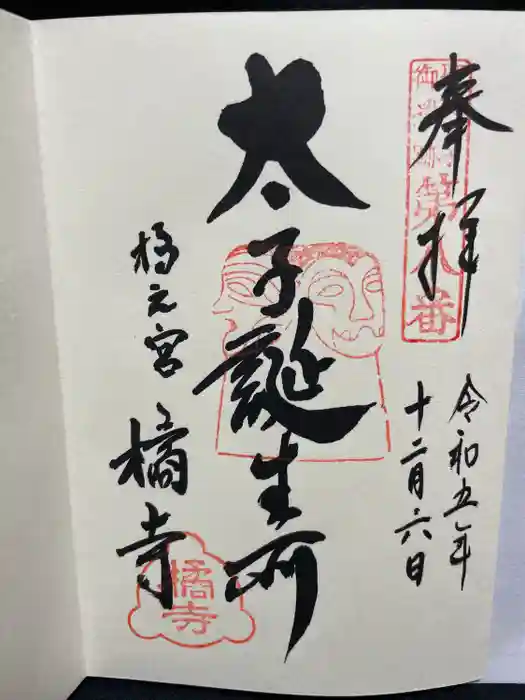 奉拝
第八番
令和五年
十二月六日
太子誕生所
橘元宮
橘寺
橘寺